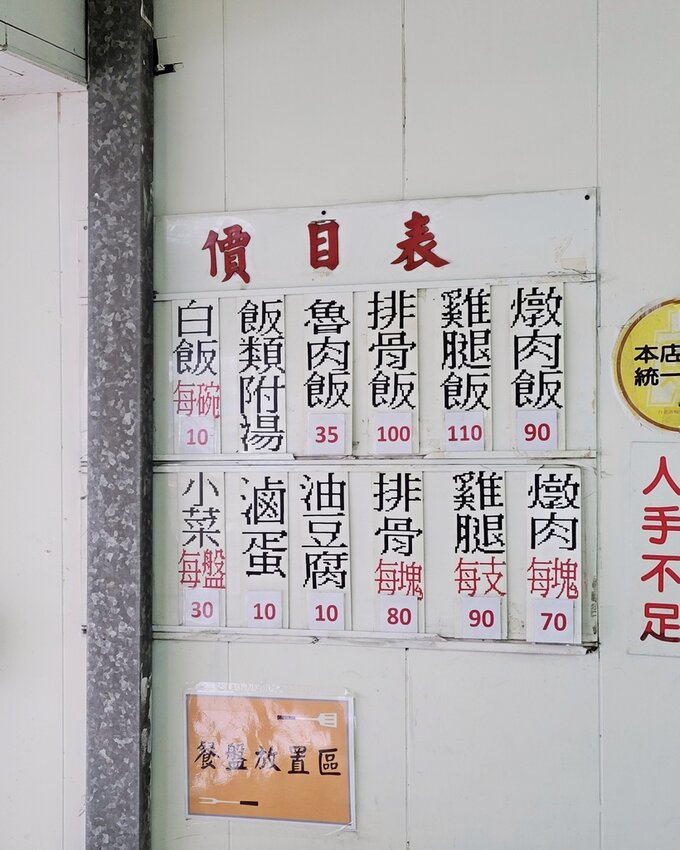 價目表
燉肉飯 90
雞腿飯 110
排骨飯 100
魯肉飯 35
飯類附湯
白飯 每碗 10
燉肉 每塊 70
雞腿 每支 90
排骨 每塊 80
油豆腐 10
滷蛋 10
小菜 每盤 30
本店
統一
人手不足
餐盤放置區